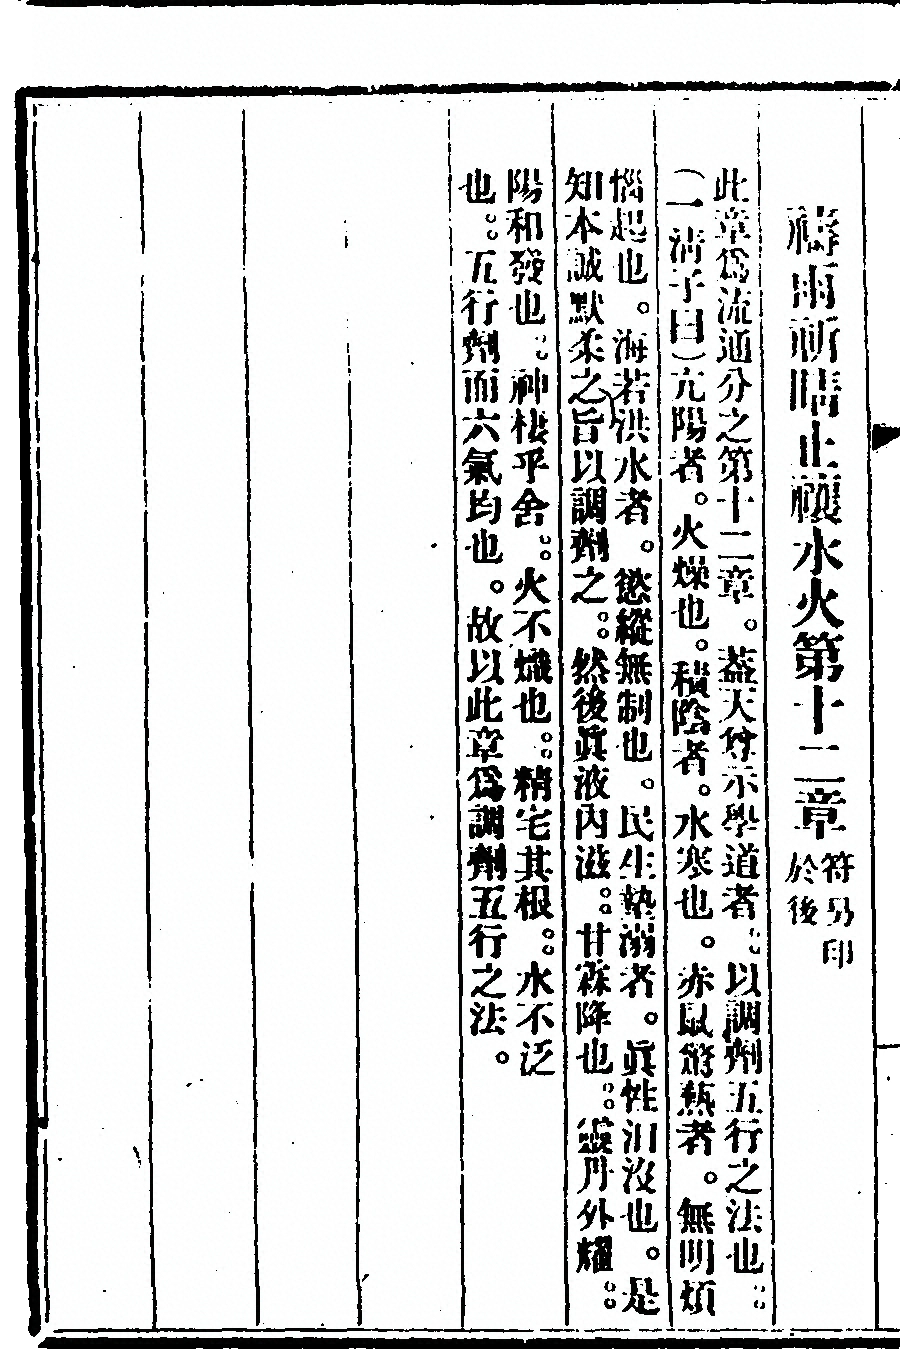 禱雨祈晴止禳水火第十二章符另印
於後
此章爲流通分之第十二章。葢天尊示學道者。以調劑五行之法也。
(一清子曰)亢陽者。火燥也。積陰者。水寒也。赤鼠簷熱者。無明煩
惱起也。海若洪水者。慾縱無制也。民生墊溺者。眞性汨沒也。是
知本誠默柔之旨以調劑之。然後眞液內滋。甘霖降也。靈丹外耀。
陽和發也。神棲乎舍。火不熾也。精宅其根。水不泛
也。五行劑而六氣均也。故以此章爲調劑五行之法。